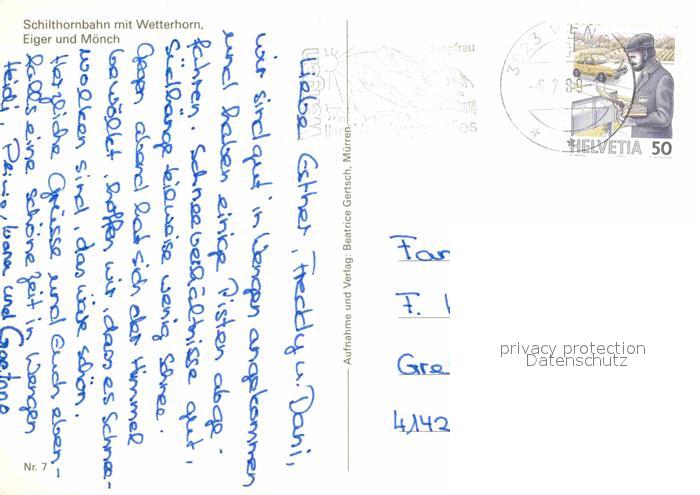 Schilthornbahn mit Wetterhorn,
Eiger und Mönch
Liebe Esther, Freddy u. Dani,
wir sind gut in Wengen angekommen
und haben einige Pisten abge-
fahren. Schneeverhältnisse gut,
Südhänge teilweise wenig Schnee.
Gegen abend hat sich der Himmel
bewölkt, hoffen wir, dass es Schnee-
wolken sind, das wäre schön.
Herzliche Grüsse und Euch eben-
falls eine schöne Zeit in Wengen
Heidi, und
Nr. 7
Aufnahme und Verlag: Beatrice Gertsch, Mürren
Jungfrau
3823 WEN
HELVETIA 50
Fa
F.
Gre
4142
privacy protection
Datenschutz